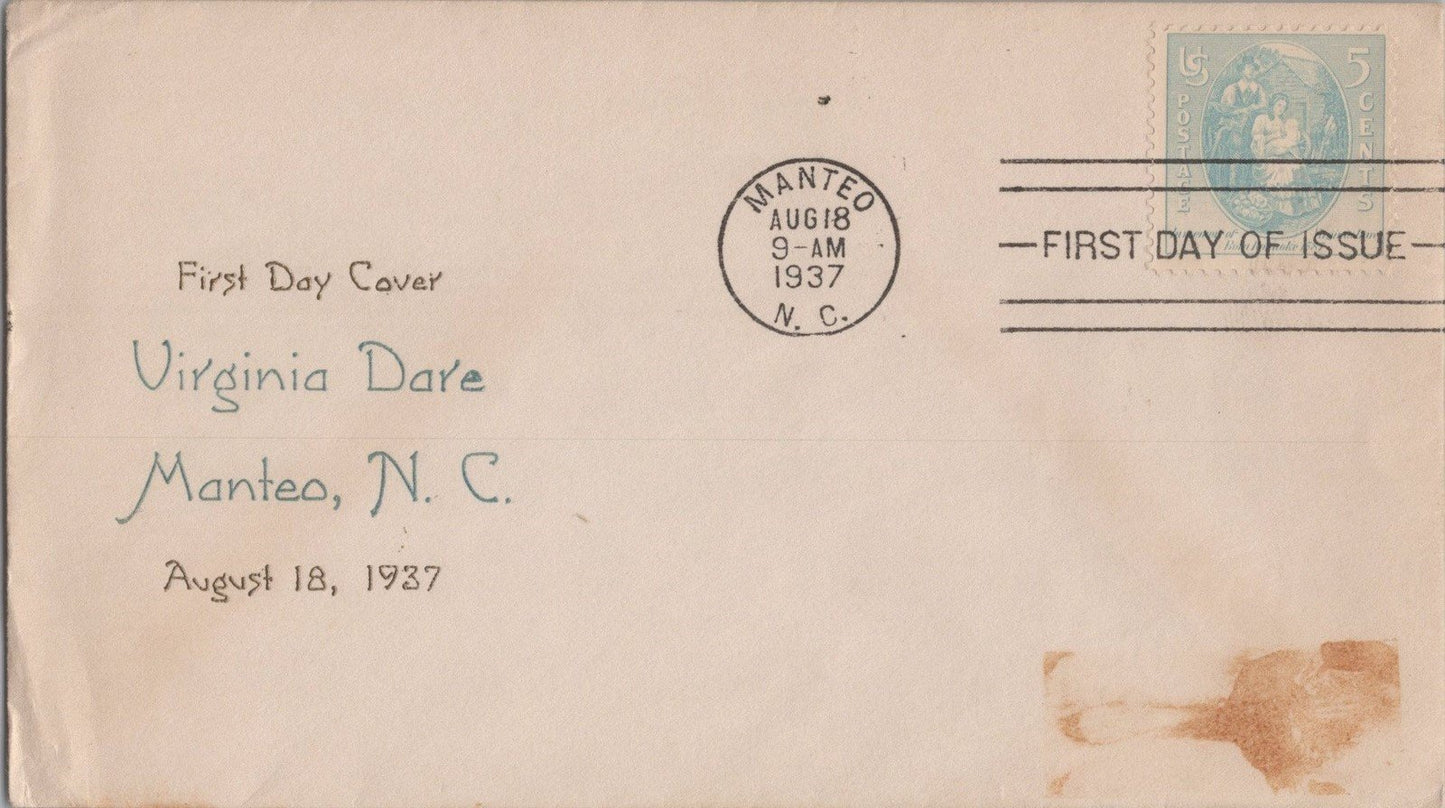 US 5
POSTAGE
CENTS
MANTEO
AUG 18
9-AM
1937
N. C.
FIRST DAY OF ISSUE
First Day Cover
Virginia Dare
Manteo, N. C.
August 18, 1937